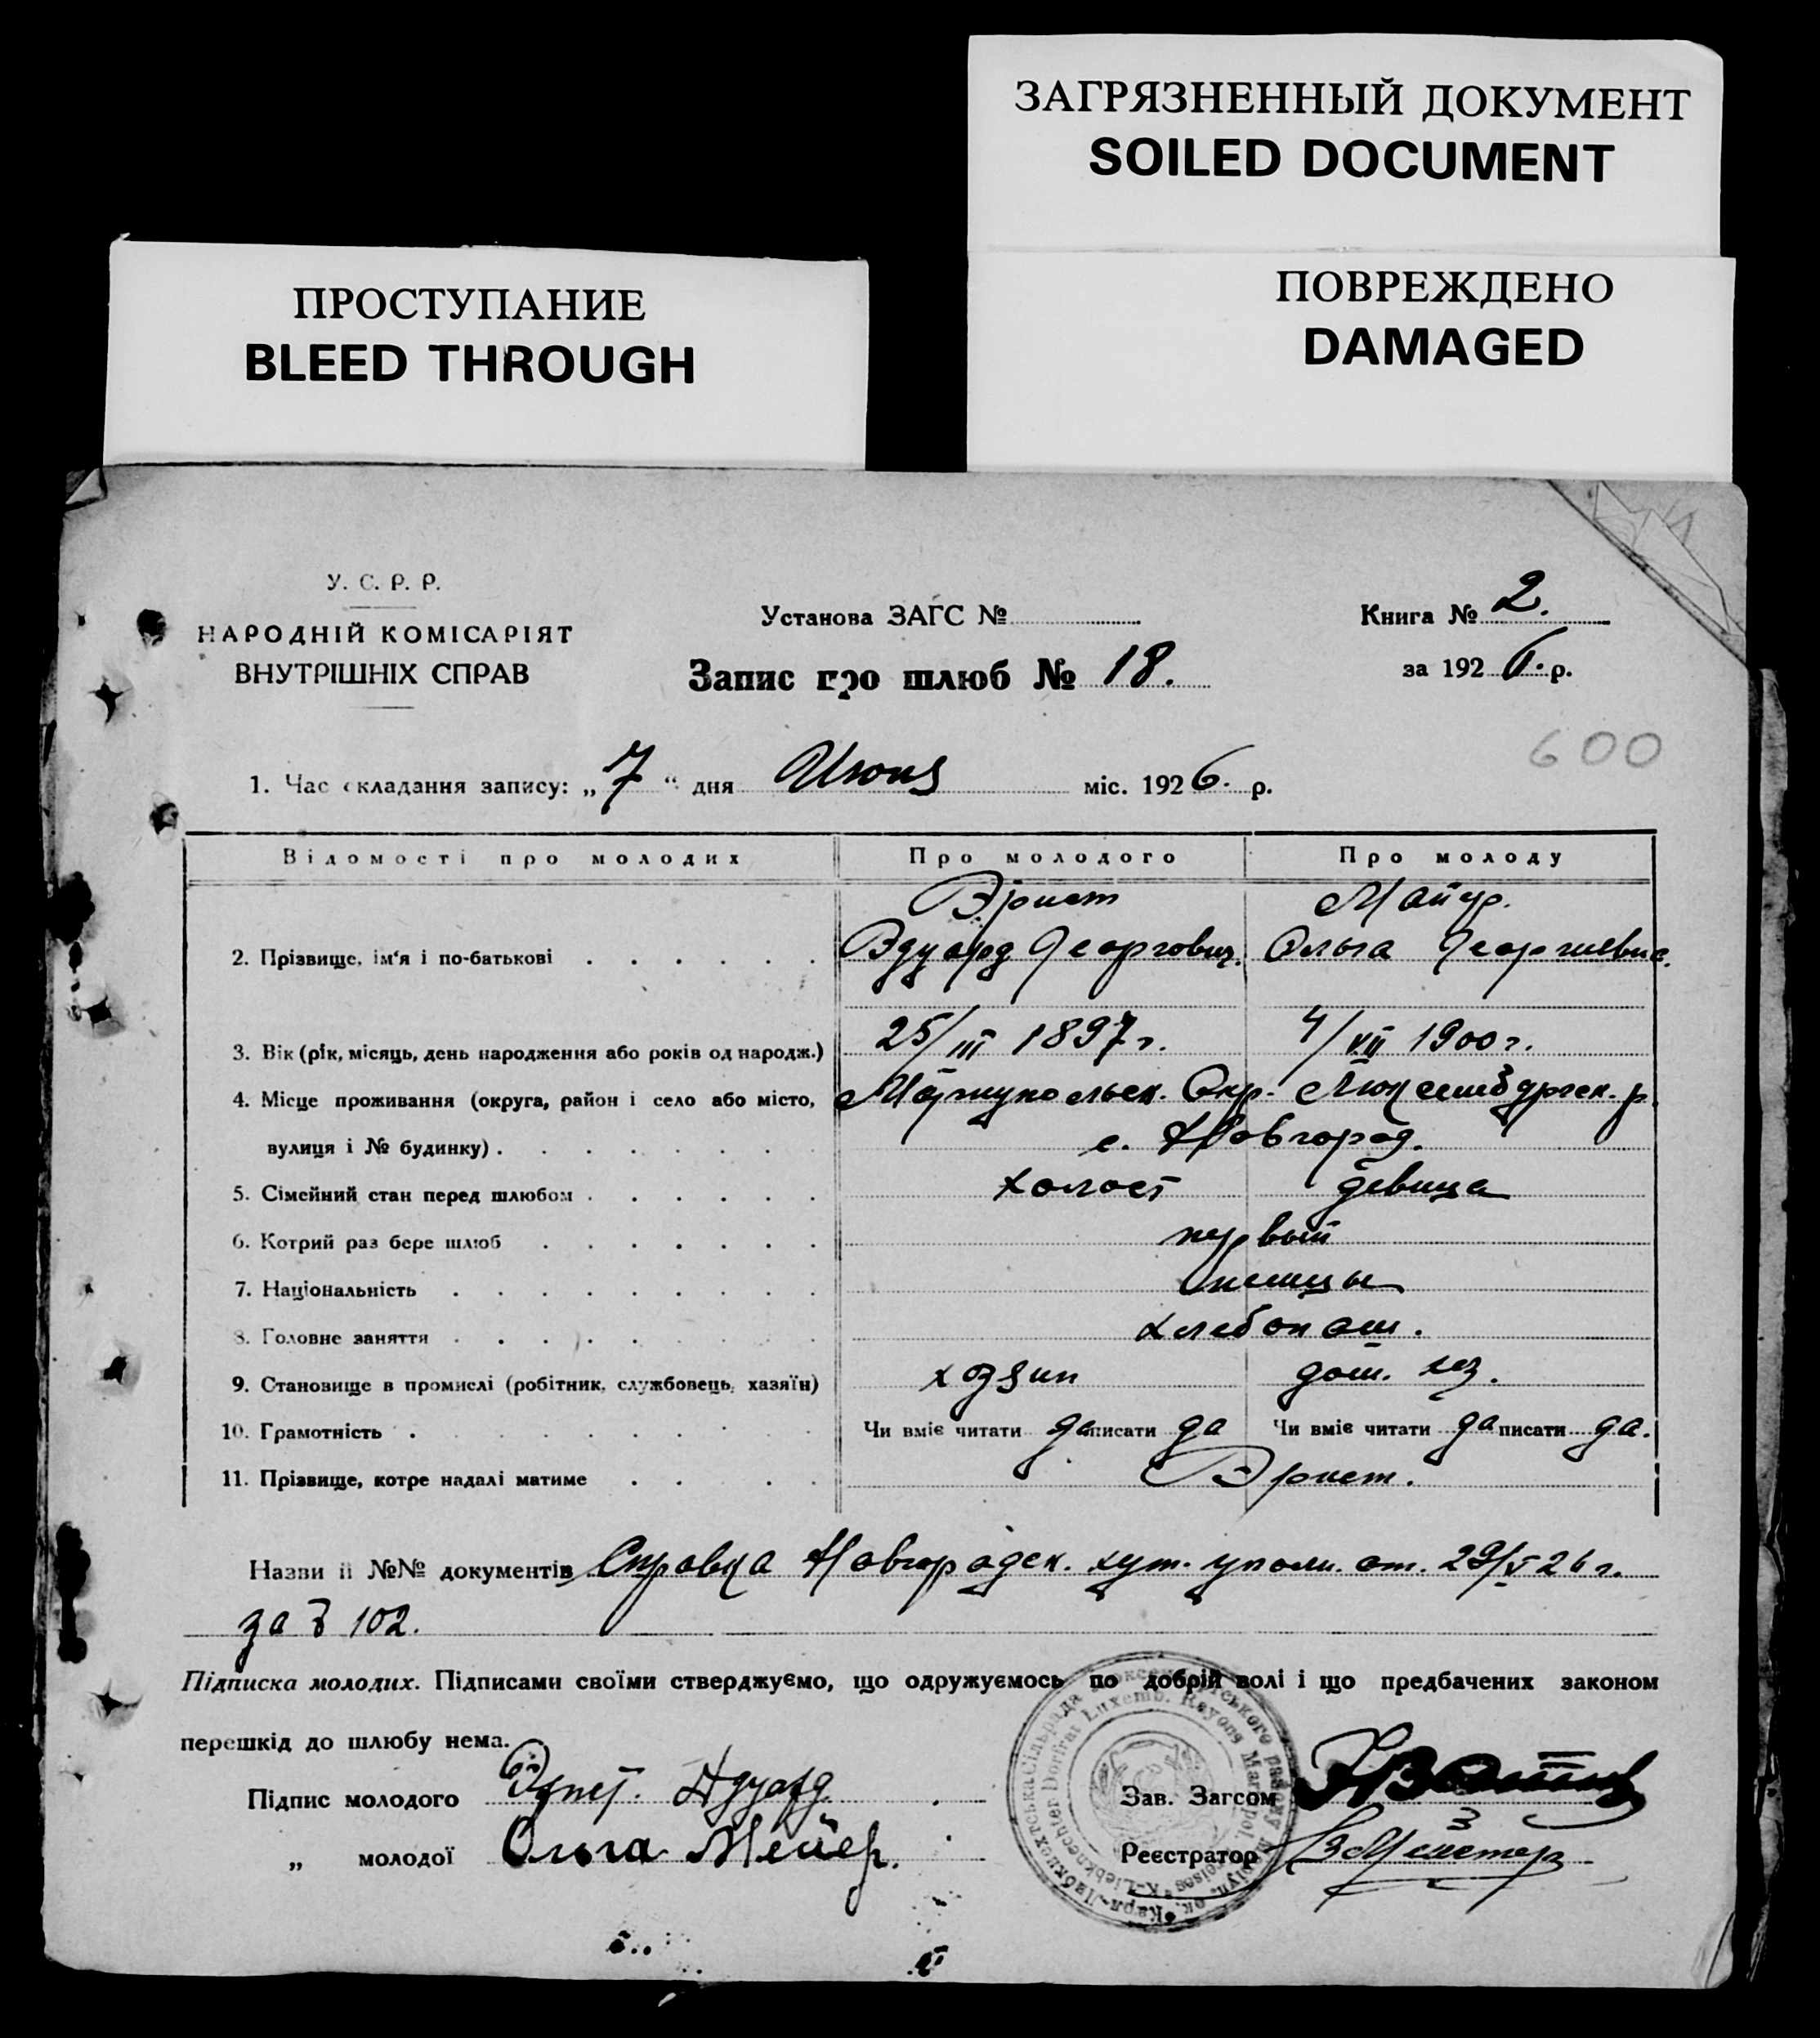 ЗАГРЯЗНЕННЫЙ ДОКУМЕНТ
SOILED DOCUMENT
ПРОСТУПАНИЕ
BLEED THROUGH
ПОВРЕЖДЕНО
DAMAGED
У. С. Р. Р.
НАРОДНІЙ КОМІСАРІЯТ
ВНУТРІШНІХ СПРАВ
Установа ЗАГС №
Запис про шлюб № 18.
Книга № 2.
за 1926. р.
600
1. Час складання запису: „7“ дня Июня міс. 1926. р.
Відомості про молодих Про молодого Про молоду
Эрнст Майер.
2. Прізвище, ім‘я і по-батькові Эдуард Георгович. Ольга Георгиевна.
3. Вік (рік, місяць, день народження або років од народж.) 25/III 1897 г. 4/VII 1900 г.
4. Місце проживання (округа, район і село або місто, Мариупольск. Окр. Люксембургск. р.
вулиця і № будинку). с. Новгород.
5. Сімейний стан перед шлюбом холост девица
6. Котрий раз бере шлюб первый
7. Національність немцы
8. Головне заняття хлебопаш.
9. Становище в промислі (робітник, службовець, хазяїн) хозяин дом. хоз.
10. Грамотність Чи вміє читати да писати да Чи вміє читати да писати да.
11. Прізвище, котре надалі матиме Эрнст.
Назви й №№ документів Справка Новгородск. хут. уполн. от. 29/V 26 г.
за № 102.
Підписка молодих. Підписами своїми стверджуємо, що одружуємось по добрій волі і що предбачених законом
перешкід до шлюбу нема.
Підпис молодого Эрнст. Эдуард
Зав. Загсом
„ молодої Ольга Мейер.
Реєстратор
Карл-Лібкнехтська Сільрада Люксембурського району Маріюп. ок.
K.-Liebknechter Dorfrat Luxemb. Rayons Mariupol. Kreises